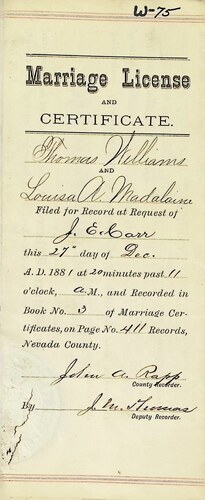 W-75
Marriage License
AND
CERTIFICATE.
Thomas Williams
AND
Louisa A. Madalaine
Filed for Record at Request of
J. E. Carr
this 27th day of Dec.
A. D. 1881 at 20 minutes past 11
o'clock, A.M., and Recorded in
Book No. 3 of Marriage Cer-
tificates, on Page No. 411 Records,
Nevada County.
John A. Rapp
County Recorder.
By J. M. Thomas
Deputy Recorder.